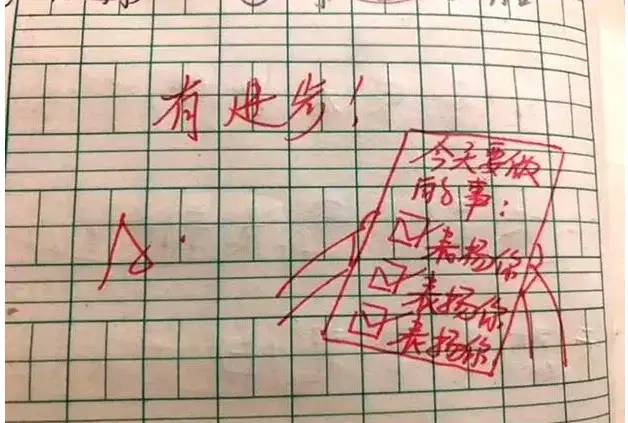 有进步！
今天要做
的事：
表扬你
表扬你
表扬你